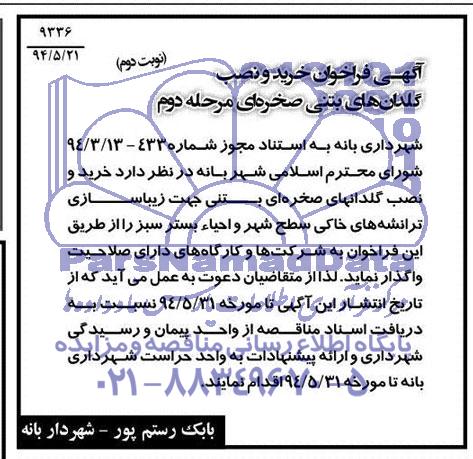 ۹۳۳۶
۹۴/۵/۲۱
(نوبت دوم)
آگهی فراخوان خرید و نصب
گلدان‌های بتنی صخره‌ای مرحله دوم
شهرداری بانه به استناد مجوز شماره ۴۳۳ - ۹۴/۳/۱۳
شورای محترم اسلامی شهر بانه در نظر دارد خرید و
نصب گلدانهای صخره‌ای بتنی جهت زیباسازی
ترانشه‌های خاکی سطح شهر و احیاء بستر سبز را از طریق
این فراخوان به شرکت‌ها و کارگاه‌های دارای صلاحیت
واگذار نماید. لذا از متقاضیان دعوت به عمل می آید که از
تاریخ انتشار این آگهی تا مورخه ۹۴/۵/۳۱ نسبت به
دریافت اسناد مناقصه از واحد پیمان و رسیدگی
شهرداری و ارائه پیشنهادات به واحد حراست شهرداری
بانه تا مورخه ۹۴/۵/۳۱ اقدام نمایند.
بابک رستم پور - شهردار بانه
ParsNamadData
پایگاه اطلاع رسانی مناقصه و مزایده
۰۲۱-۸۸۳۴۹۶۷۰-۵